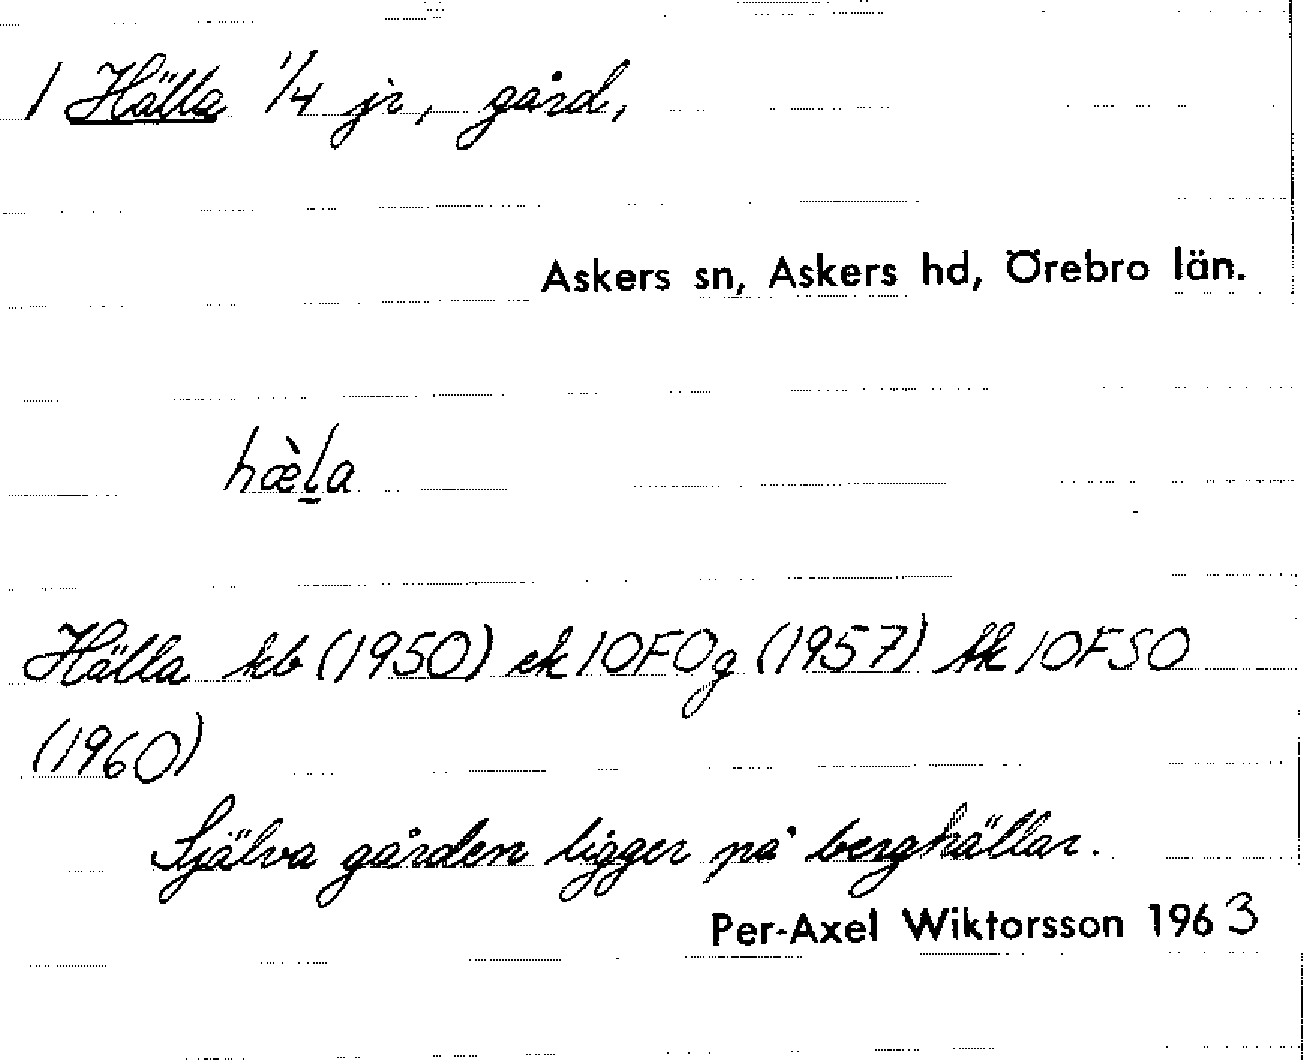 1 Hälla 1/4 jr, gård,
Askers sn, Askers hd, Örebro län.
hæ̀l̠a
Hälla kb (1950) ek 10F0g (1957) tk 10FSO
(1960)
Själva gården ligger på berghällar.
Per-Axel Wiktorsson 1963